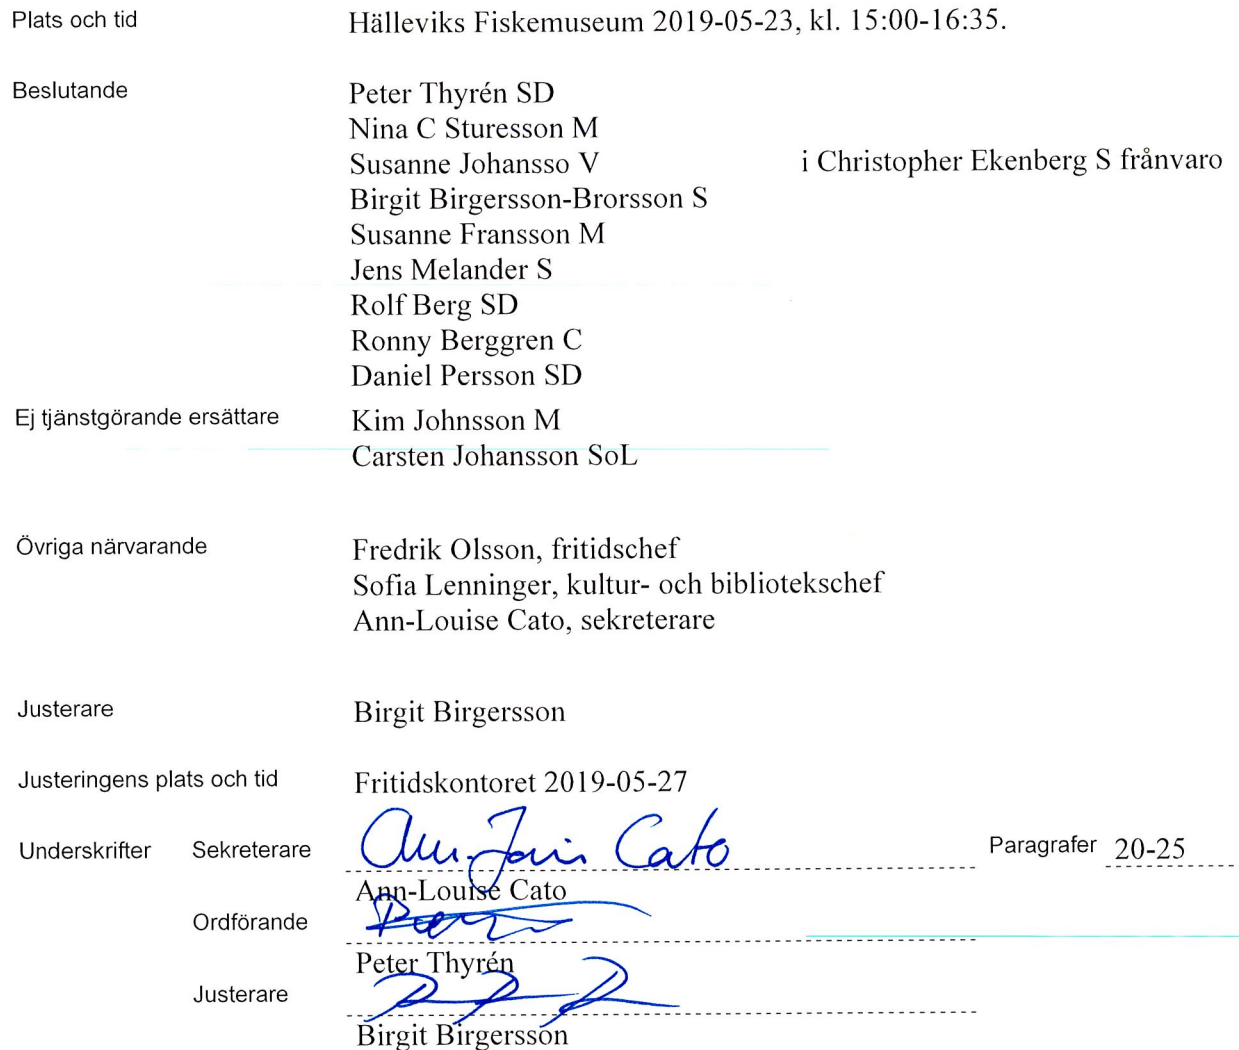 Plats och tid Hälleviks Fiskemuseum 2019-05-23, kl. 15:00-16:35.
Beslutande Peter Thyrén SD
Nina C Sturesson M
Susanne Johansso V i Christopher Ekenberg S frånvaro
Birgit Birgersson-Brorsson S
Susanne Fransson M
Jens Melander S
Rolf Berg SD
Ronny Berggren C
Daniel Persson SD
Ej tjänstgörande ersättare Kim Johnsson M
Carsten Johansson SoL
Övriga närvarande Fredrik Olsson, fritidschef
Sofia Lenninger, kultur- och bibliotekschef
Ann-Louise Cato, sekreterare
Justerare Birgit Birgersson
Justeringens plats och tid Fritidskontoret 2019-05-27
Underskrifter Sekreterare Cato Paragrafer 20-25
Ann-Louise Cato
Ordförande
Peter Thyrén
Justerare
Birgit Birgersson